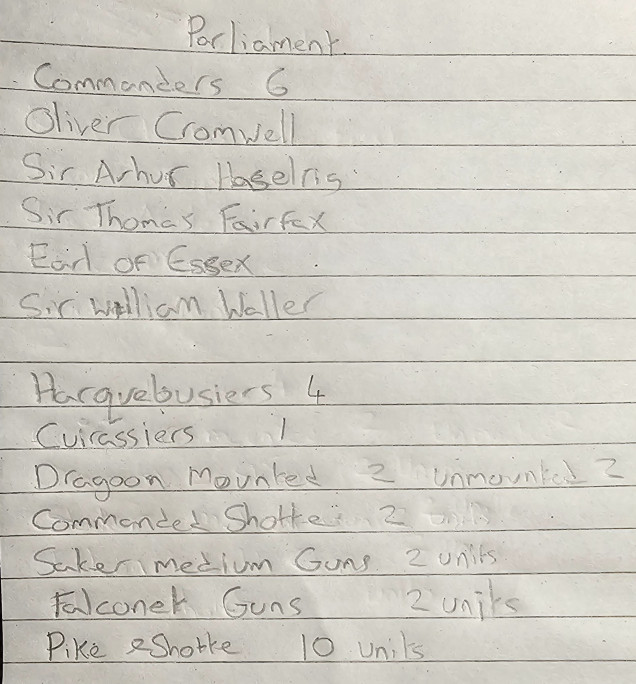 Parliament.
Commanders 6
Oliver Cromwell
Sir Arhur Haselrig
Sir Thomas Fairfax
Earl of Essex
Sir William Waller
Harquebusiers 4
Cuirassiers 1
Dragoon Mounted 2 unmounted 2
Commanded Shotte 2
Saker medium Guns 2 units
Falconet Guns 2 units
Pike & Shotte 10 units